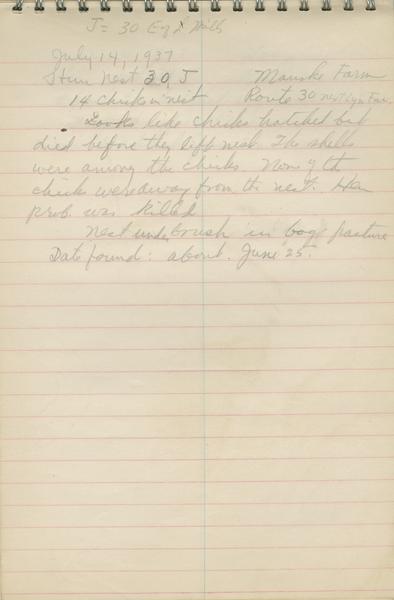 J = 30 Egg Shells
July 14, 1937
Nest 30, J Manske Farm
14 chicks in nest Route 30
Looks like chicks hatched but
died before they left nest. The shells
were among the chicks. None of the
chicks were away from the nest. Hen
prob. was killed
Nest under brush in bog pasture
Date found: about June 25.